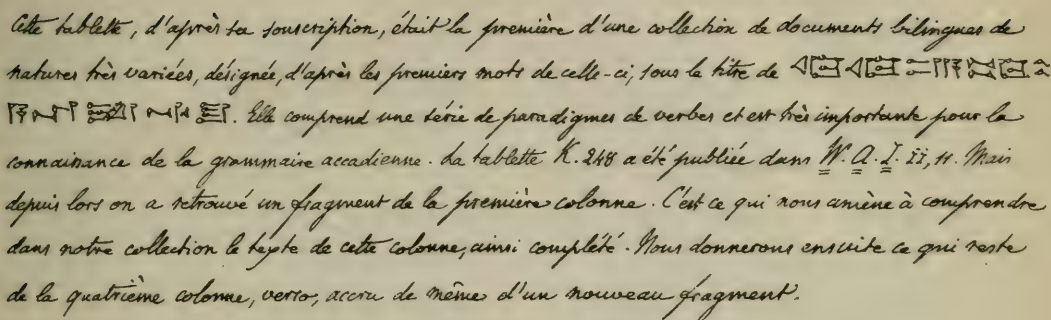 Cette tablette, d'après sa souscription, était la première d'une collection de documents bilingues de
natures très variées, désignée, d'après les premiers mots de celle-ci, sous le titre de
. Elle comprend une série de paradigmes de verbes et est très importante pour la
connaissance de la grammaire accadienne. La tablette K. 248 a été publiée dans W. A. I. II, 11. Mais
depuis lors on a retrouvé un fragment de la première colonne. C'est ce qui nous amène à comprendre
dans notre collection le texte de cette colonne, ainsi complété. Nous donnerons ensuite ce qui reste
de la quatrième colonne, verso, accru de même d'un nouveau fragment.